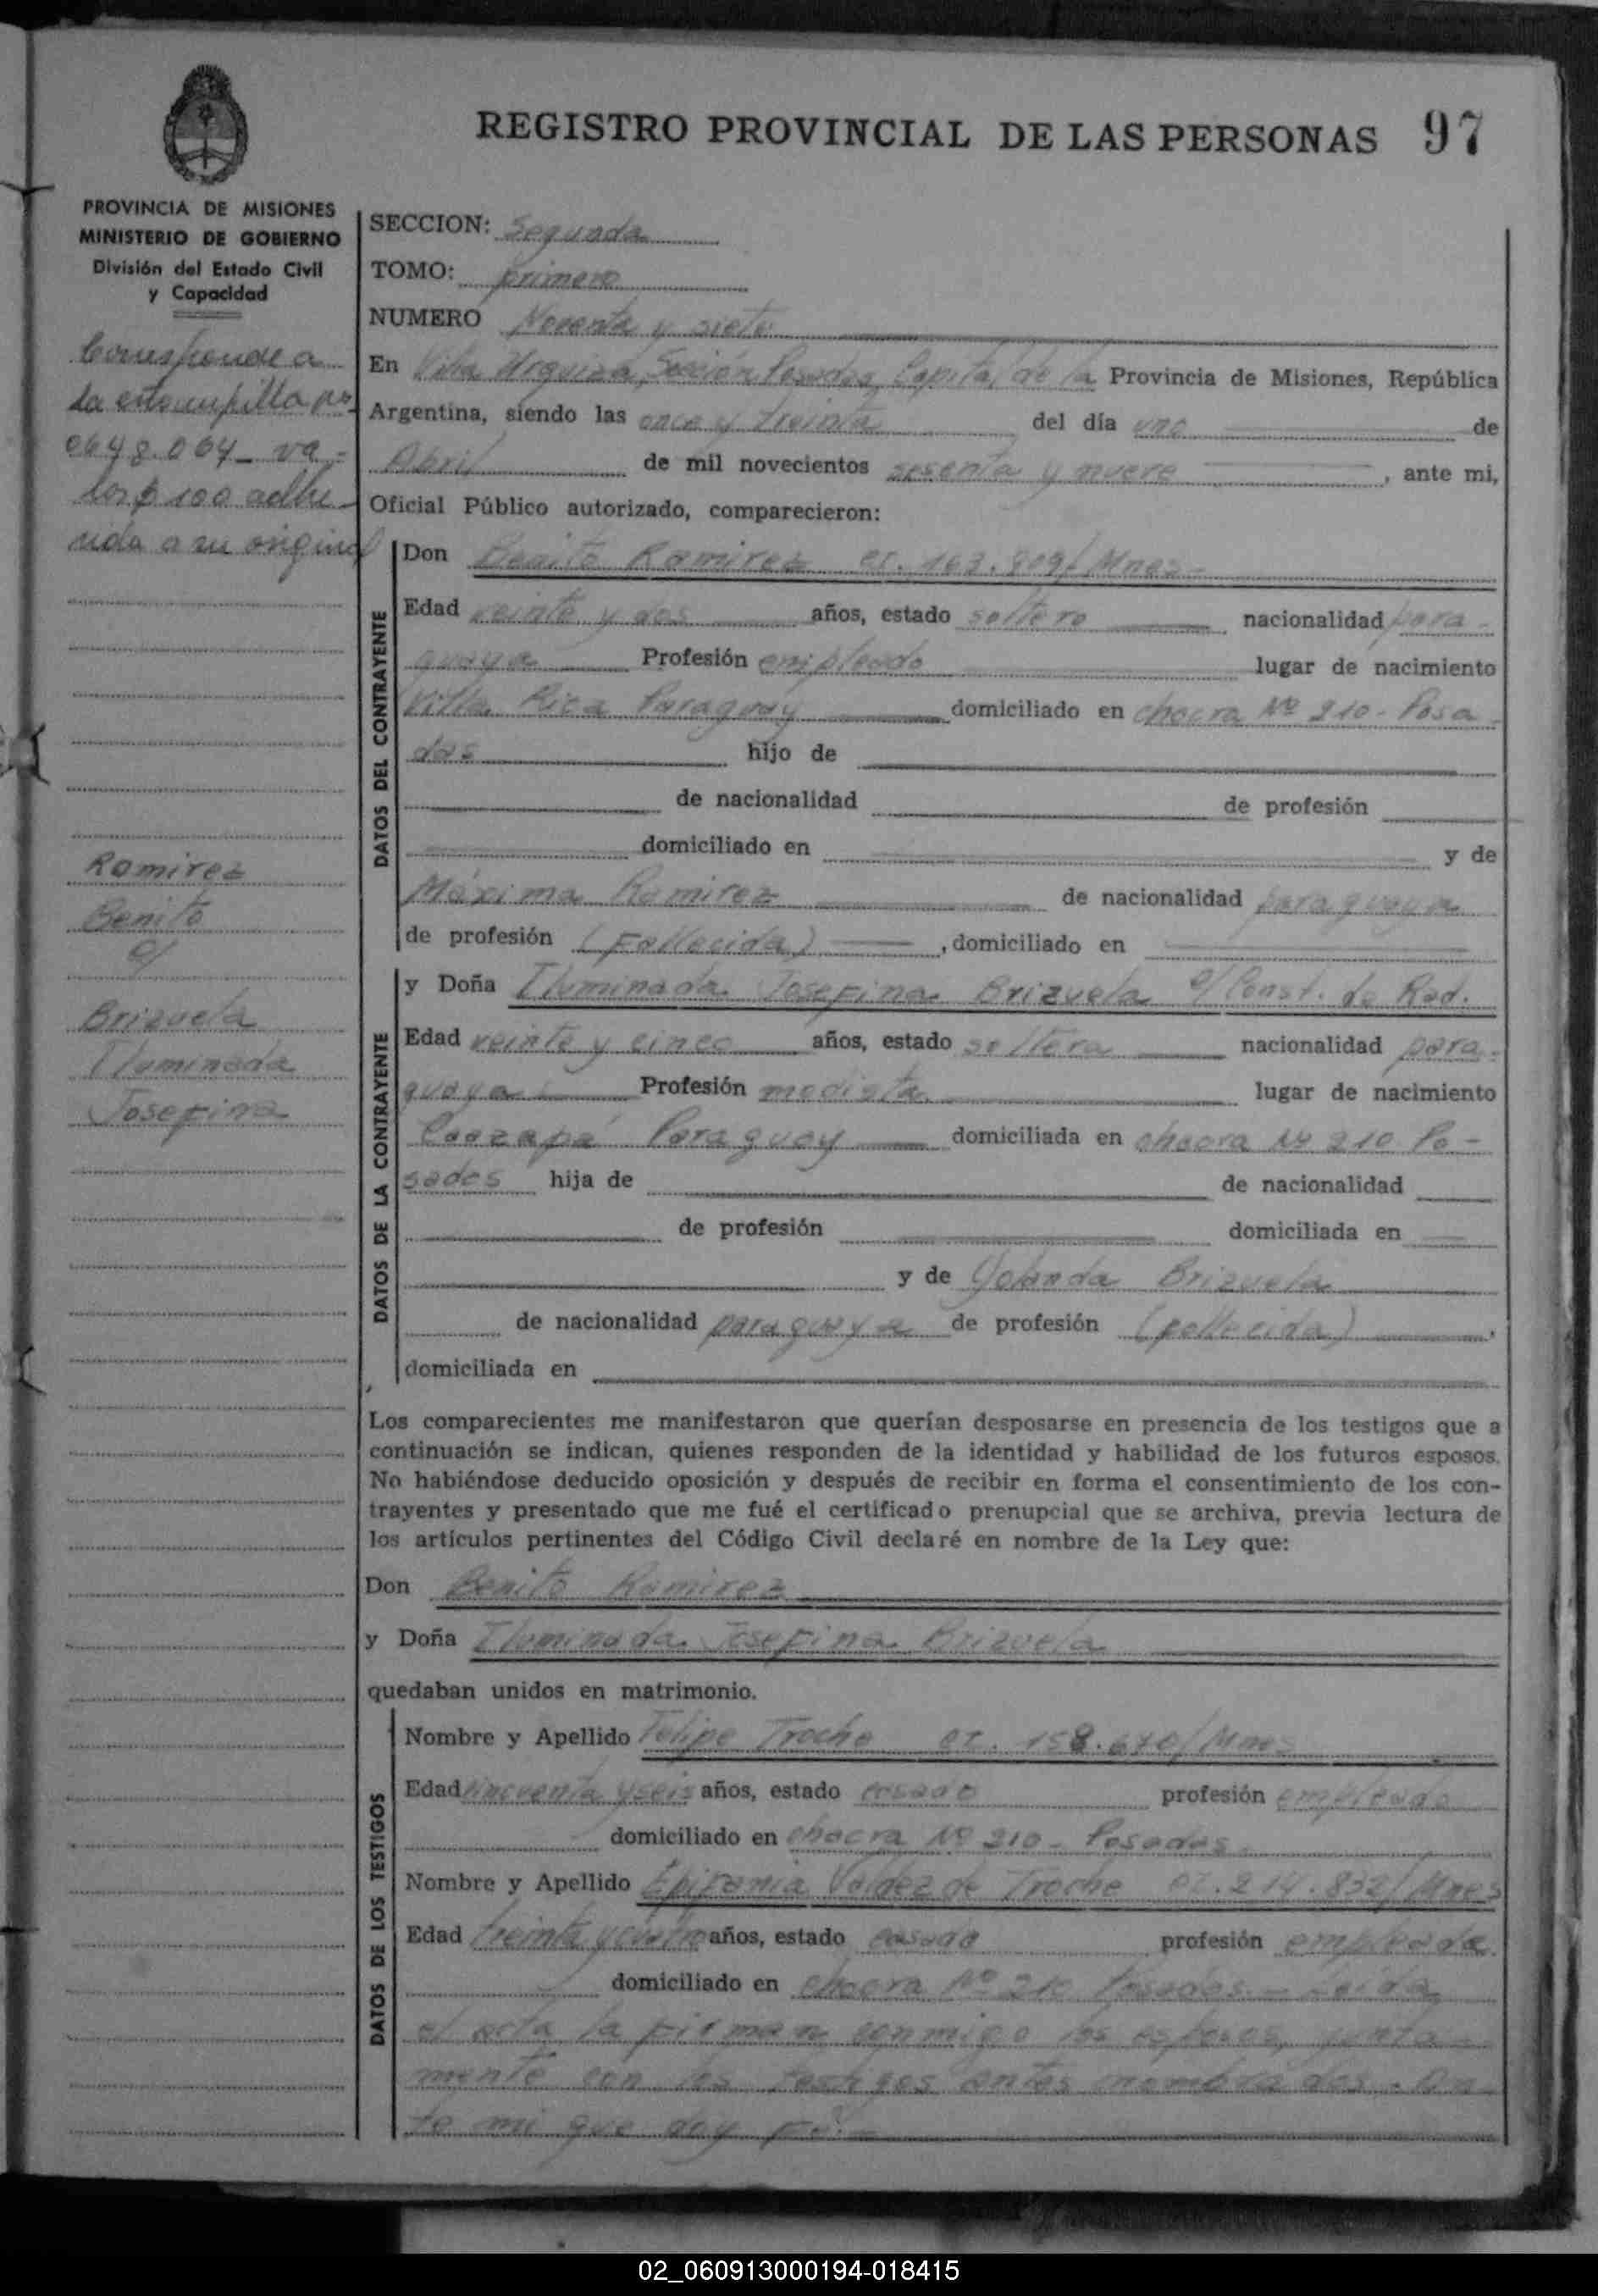 REGISTRO PROVINCIAL DE LAS PERSONAS 97
PROVINCIA DE MISIONES
MINISTERIO DE GOBIERNO
División del Estado Civil
y Capacidad
Corresponde a
la estampilla no
0648.064 - va-
lor $ 100 adhe-
rida a su original
Ramirez
Benito
c/
Brizuela
Iluminada
Josefina
SECCION: Segunda
TOMO: primero
NUMERO Noventa y siete
En Villa Urquiza, Sección Posadas, Capital de la Provincia de Misiones, República
Argentina, siendo las once y treinta del día uno de
Abril de mil novecientos sesenta y nueve, ante mi,
Oficial Público autorizado, comparecieron:
DATOS DEL CONTRAYENTE
Don Benito Ramirez CI. 163.809/Mnes
Edad veinte y dos años, estado soltero nacionalidad para-
guaya Profesión empleado lugar de nacimiento
Villa Rica Paraguay domiciliado en chacra Nº 210 - Posa-
das hijo de
de nacionalidad de profesión
domiciliado en y de
Máxima Ramirez de nacionalidad paraguaya
de profesión (Fallecida), domiciliado en
DATOS DE LA CONTRAYENTE
y Doña Iluminada Josefina Brizuela c/ Const. de Rad.
Edad veinte y cinco años, estado soltera nacionalidad para-
guaya Profesión modista lugar de nacimiento
Caazapá Paraguay domiciliada en chacra Nº 210 Po-
sadas hija de de nacionalidad
de profesión domiciliada en
y de Yolanda Brizuela
de nacionalidad paraguaya de profesión (fallecida),
domiciliada en
Los comparecientes me manifestaron que querían desposarse en presencia de los testigos que a
continuación se indican, quienes responden de la identidad y habilidad de los futuros esposos.
No habiéndose deducido oposición y después de recibir en forma el consentimiento de los con-
trayentes y presentado que me fué el certificado prenupcial que se archiva, previa lectura de
los artículos pertinentes del Código Civil declaré en nombre de la Ley que:
Don Benito Ramirez
y Doña Iluminada Josefina Brizuela
quedaban unidos en matrimonio.
DATOS DE LOS TESTIGOS
Nombre y Apellido Felipe Troche CI. 158.670/Mnes
Edad cincuenta y seis años, estado casado profesión empleado
domiciliado en chacra Nº 210 - Posadas
Nombre y Apellido Epifania Valdez de Troche CI. 214.832/Mnes
Edad treinta y cuatro años, estado casada profesión empleada
domiciliado en chacra Nº 210 Posadas. - Leída
el acta la firman conmigo los esposos, junta-
mente con los testigos antes nombrados. An-
te mi que doy fé.
02_060913000194-018415